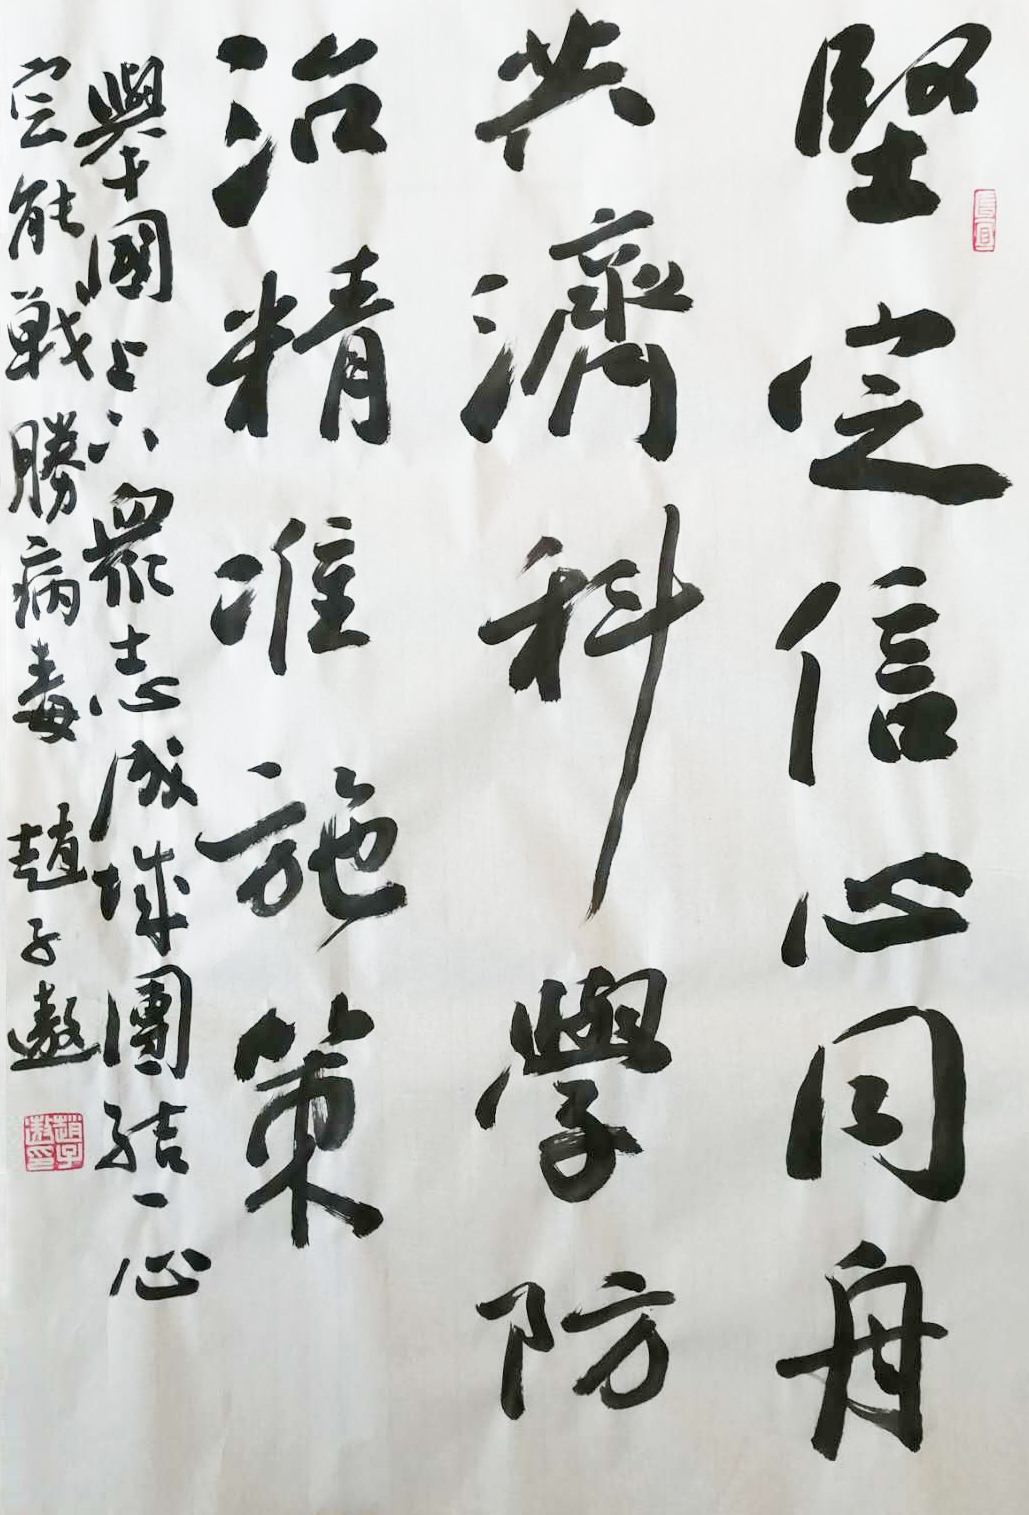 堅定信心同舟
共濟科學防
治精准施策
舉國上下眾志成城團結一心
定能戰勝病毒 趙子遨
趙子遨印